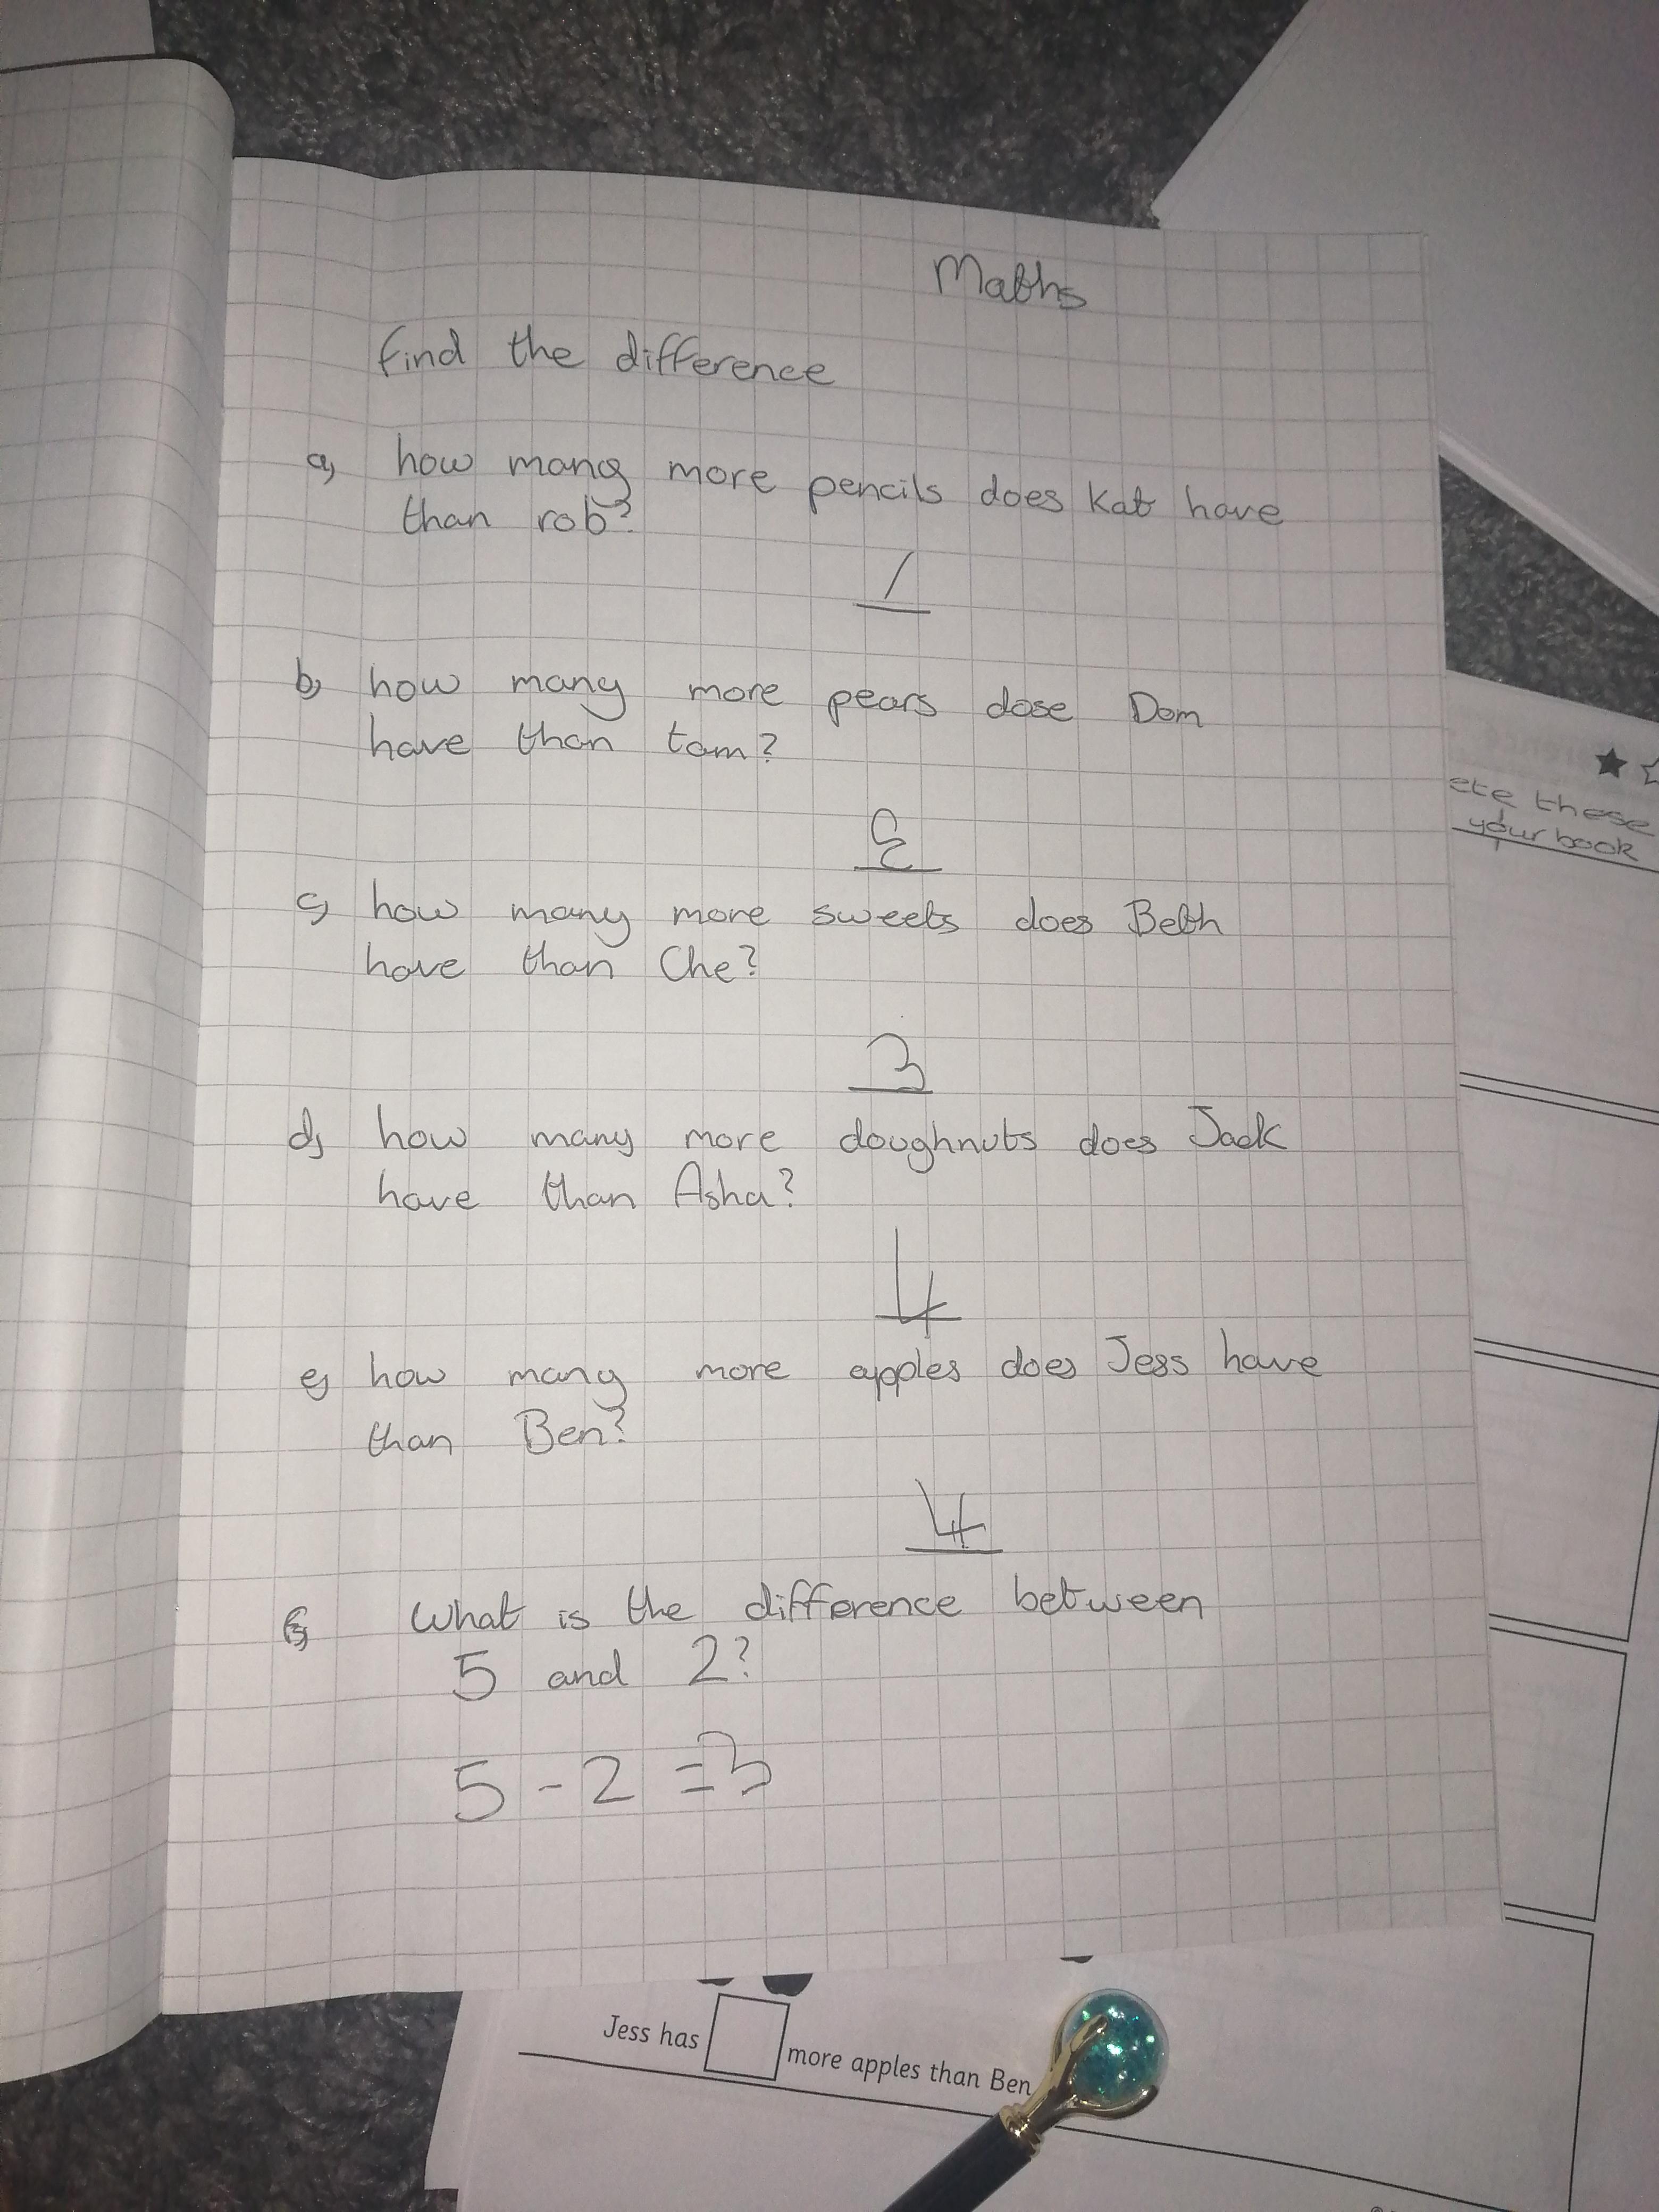 Maths
find the difference
a, how many more pencils does Kat have
than rob?
1
b, how many more pears dose Dom
have than tom?
2
c, how many more sweets does Beth
have than Che?
3
d, how many more doughnuts does Jack
have than Asha?
4
e, how many more apples does Jess have
than Ben?
4
f, What is the difference between
5 and 2?
5 - 2 = 3
ete these
your book
Jess has more apples than Ben